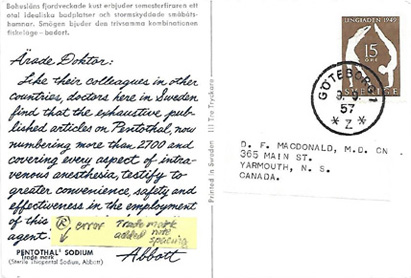 Bohusläns fjordveckade kust erbjuder semesterfiraren ett
otal idealiska badplatser och stormskyddade småbåts-
hamnar. Smögen bjuder den trivsamma kombinationen
fiskeläge - badort.
Ärade Doktor:
Like their colleagues in other
countries, doctors here in Sweden
find that the exhaustive, pub-
lished articles on Pentothal, now
numbering more than 2700 and
covering every aspect of intra-
venous anesthesia, testify to
greater convenience, safety and
effectiveness in the employment
of this
agent.
Abbott
® error
Trade mark
added note
spacing
PENTOTHAL® SODIUM
Trade mark
(Sterile Thiopental Sodium, Abbott)
Printed in Sweden
Tre Tryckare
LINGIADEN 1949
15
ÖRE
SVERIGE
GÖTEBORG 1
57
* Z *
D. F. MACDONALD, M.D. CN
365 MAIN ST.
YARMOUTH, N. S.
CANADA.